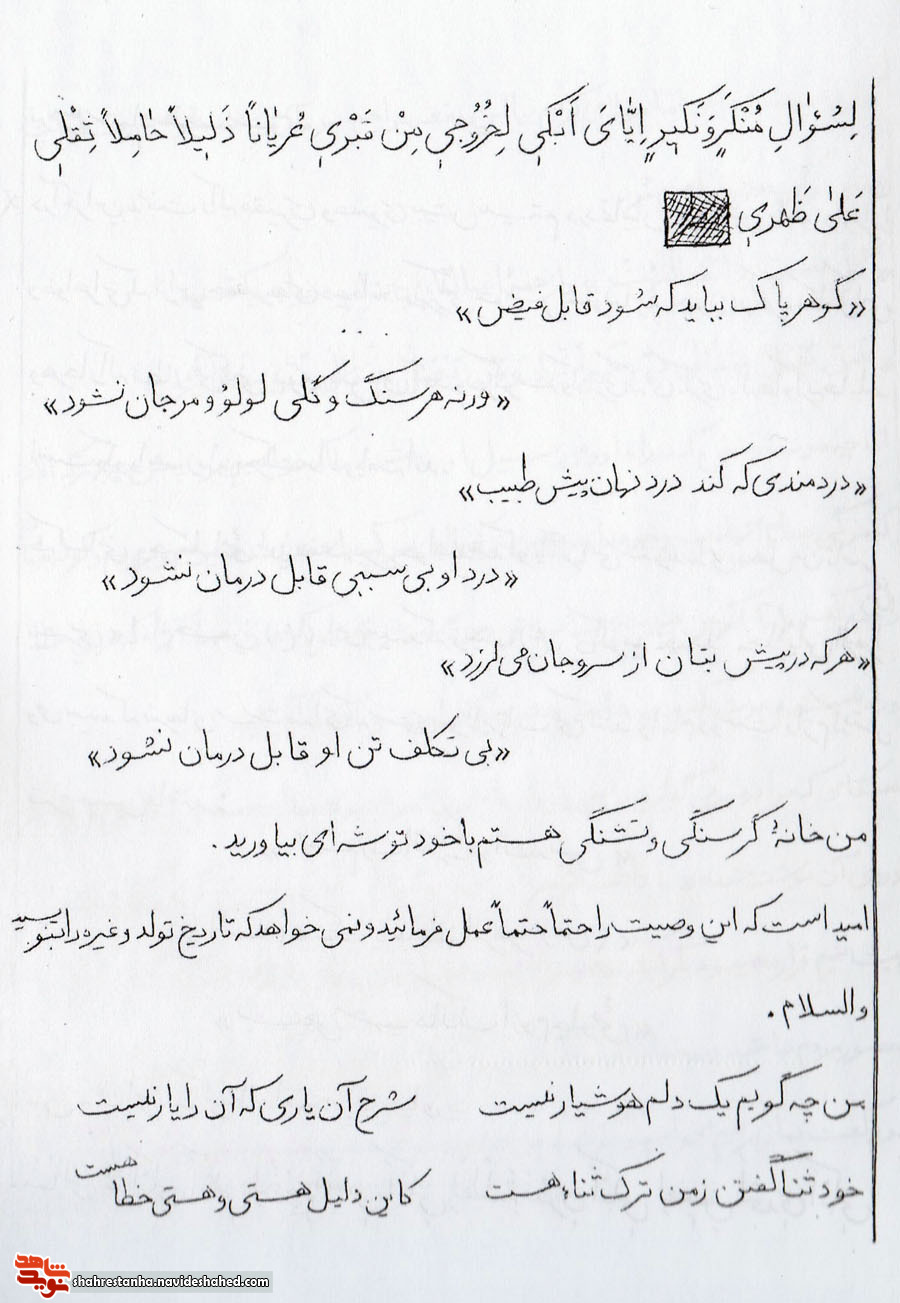 لِسُؤٰالِ مُنْکَرٍ وَ نَکٖیرٍ اِیّٰایَ اَبْکٖی لِخُرُوجٖی مِنْ قَبْرٖی عُرْیٰاناً ذَلٖیلاً حٰامِلاً ثِقْلٖی
عَلیٰ ظَهرٖی
«گوهر پاک بباید که شود قابل فیض»
...
«ورنه هر سنگ و گلی لولؤ و مرجان نشود»
«دردمندی که کند درد نهان پیش طبیب»
«درد او بی سببی قابل درمان نشود»
«هر که در پیش بتان از سر و جان می لرزد»
«بی تکلف تن او قابل درمان نشود»
من خانهٔ گرسنگی و تشنگی هستم با خود توشه ای بیاورید.
امید است که این وصیت را حتماً حتماً عمل فرمائید و نمی خواهد که تاریخ تولد و غیره را بنویسید
والسلام.
من چه گویم یک دلم هوشیار نیست شرح آن یاری که آن را یار نیست
خود ثنا گفتن زمن ترک ثناء هست کاین دلیل هستی و هستی خطا هست
نوید شاهد shahrestanha.navideshahed.com